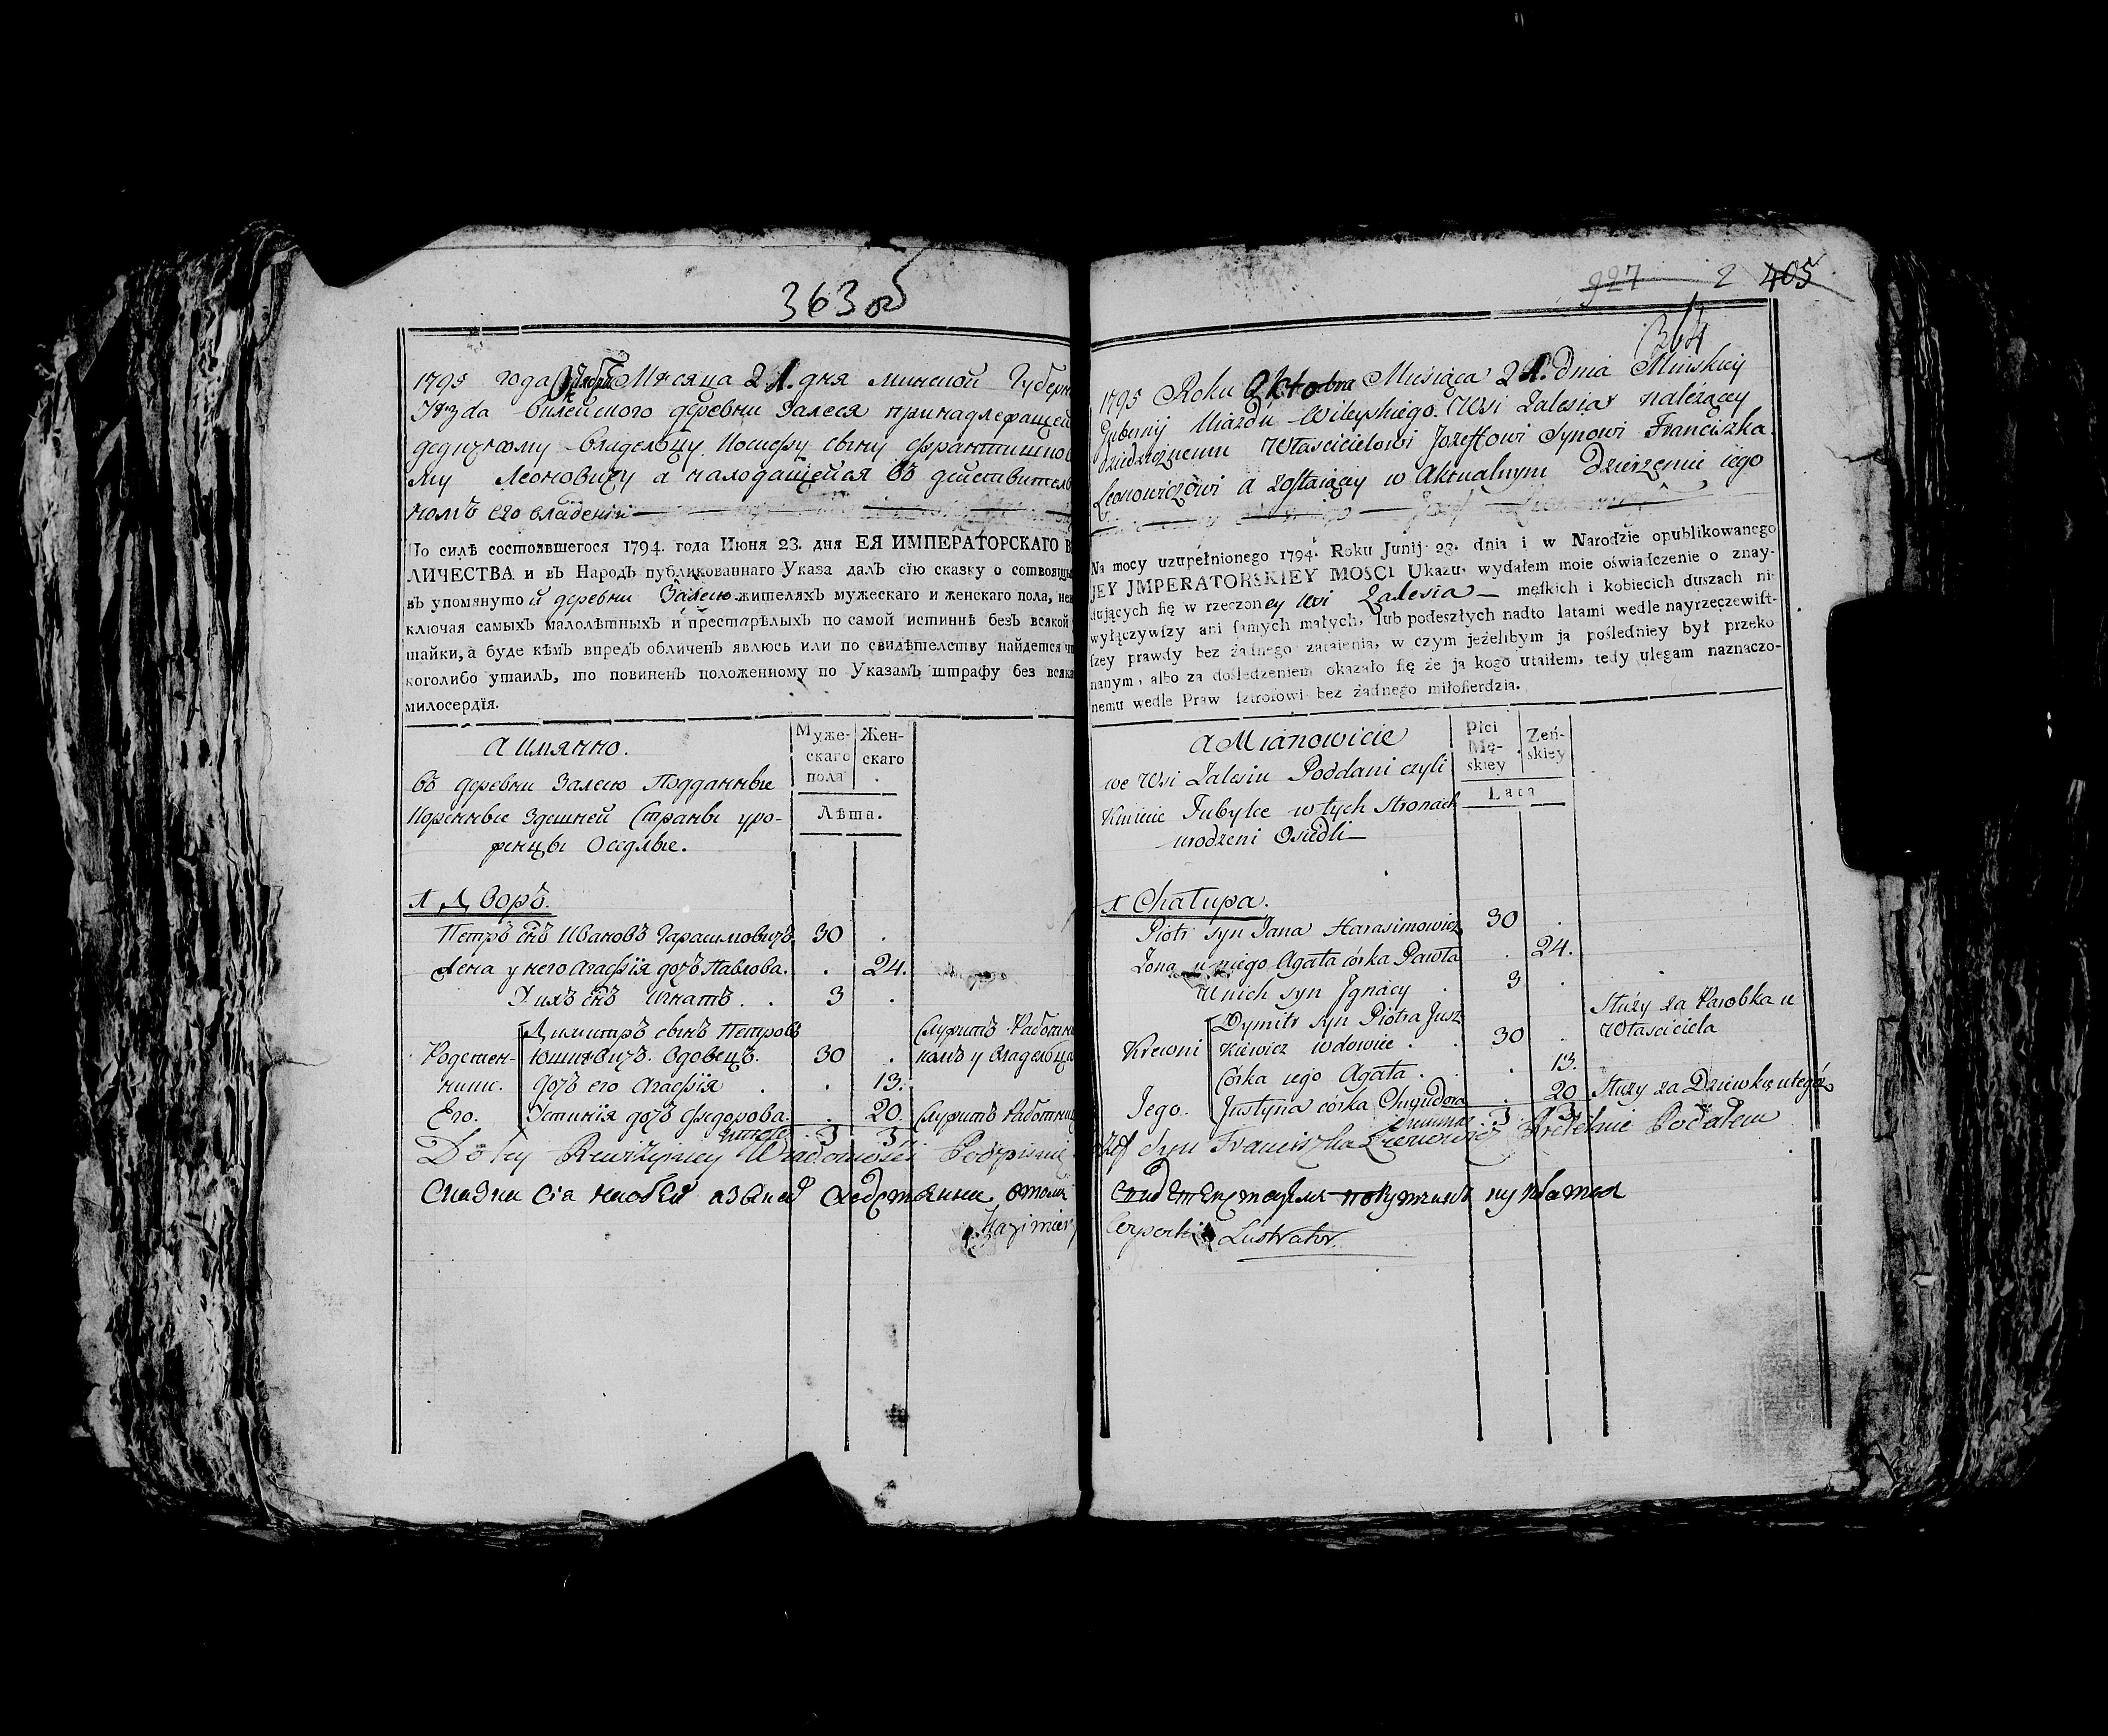 363 об
1795 года Октября Мѣсяца 21. дня Минской Губерн
Уѣзда Вилейского деревни Залеся принадлежащей
дедичному владельцу Иосифу сыну Франтишко
му Леоновичу а находящейся въ действитель
номъ его владеніи
По силѣ состоявшегося 1794. года Июня 23. дня ЕЯ ИМПЕРАТОРСКАГО В
ЛИЧЕСТВА и въ Народѣ публикованнаго Указа далъ сїю сказку о
въ упомянутой деревни Залесю жителяхъ мужескаго и женскаго пола, неи
ключая самыхъ малолѣтныхъ и престарѣлыхъ по самой истиннѣ безъ всякой
тайки, а буде кѣмъ впредъ обличенъ явлюсь или по свидѣтелству найдется чт
коголибо утаилъ, то повиненъ положенному по Указамъ штрафу без всяка
милосердїя.
А имянно.
въ деревни Залесю Подданные
Коренные здешней Страны уро-
женцы Оседлые.
Муже-
скаго
пола
Жен-
скаго
Лѣта.
1 Дворъ.
Петръ снъ Ивановъ Гарасимовичъ 30 .
Жена у него Агафїя дочь Павлова. . 24.
У ихъ снъ Игнатъ . . 3 .
Димитръ сынъ Петровъ
Родствен- Юшкевичъ. Вдовецъ. 30 . Служитъ Работни
ники. дочь его Агафїя . . 13. комъ у владельца
Его. Устинїя дочь Фидорова. . 20. Служитъ Работни
итого 3 3
Do tey Rewizyiney Wiadomości Podpisuię
Kazimierz
927 2 405
364
1795 Roku Oktobra Miesiąca 21. Dnia Mińskiey
Gubernij Uiazdu Wileyskiego. Wsi Zalesia należącey
dziedzicznemu Właścicielowi Jozeffowi Synowi Franciszka
Leonowiczowi a zostaiący w Aktualnym Dzierżeniu iego
Na mocy uzupełnionego 1794. Roku Junij 23. dnia i w Narodzie opublikowanego
JEY JMPERATORSKIEY MOSCI Ukazu, wydałem moie oświadczenie o znay-
dujących się w rzeczoney wsi Zalesia męskich i kobiecich duszach ni-
wyłączywszy ani samych małych, lub podeszłych nadto latami wedle nayrzeczewist-
szey prawdy bez żadnego zataienia, w czym jeżelibym ja pośledniey był przeko
nanym, albo za dośledzeniem okazało się że ja kogo utaiłem, tedy ulegam naznaczo-
nemu wedle Praw sztrofowi bez żadnego miłosierdzia.
A Mianowicie
we Wsi Zalesiu Poddani czyli
Kmiecie Tubylce w tych Stronach
urodzeni Osiedli
Płci
Mę-
skiey
Zeń-
skiey
Lata
1 Chałupa.
Piotr syn Jana Harasimowicz 30 .
Zona u niego Agata córka Pawła . 24.
U nich syn Jgnacy . 3 .
Dymitr syn Piotra Jusz
Krewni kiewicz wdowiec . . 30 . Służy za Parobka u Właściciela
Córka iego Agata . . 13.
Jego. Justyna córka Chwiedora . 20 Służy za Dziewkę u tegoż
Summa 3 3
Józef Syn Franciszka Leonowicz Rzetelnie Podałem
Lustrator.